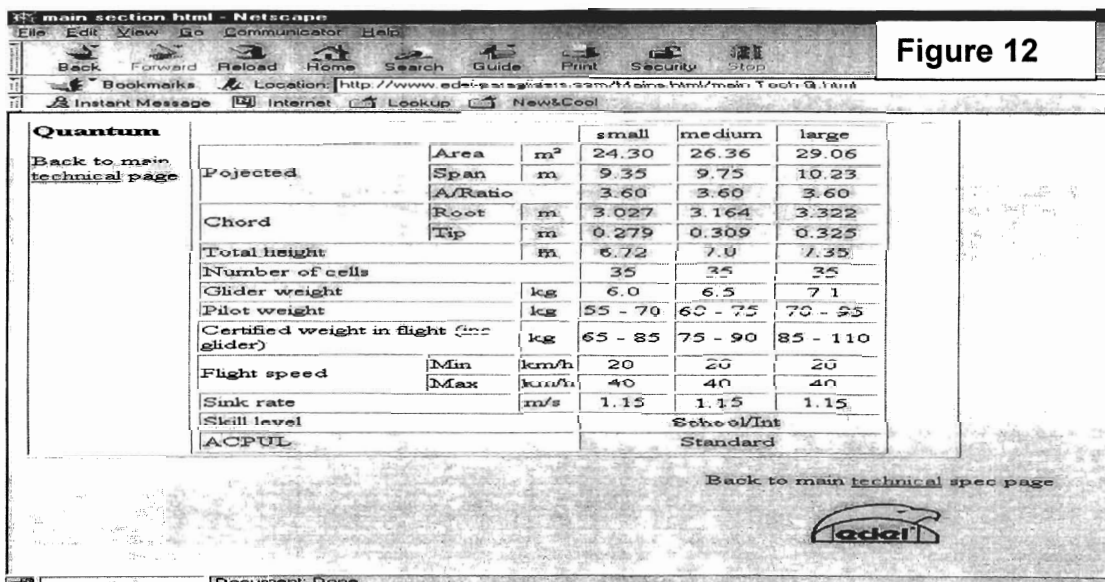 main section html - Netscape
File Edit View Go Communicator Help
Figure 12
Back Forward Reload Home Search Guide Print Security Stop
Bookmarks Location: http://www.edel-paragliders.com/Mains.html/main Tech Q.html
Instant Message Internet Lookup New&Cool
Quantum
Back to main
technical page
small medium large
Pojected Area m² 24.30 26.36 29.06
Span m 9.35 9.75 10.23
A/Ratio 3.60 3.60 3.60
Chord Root m 3.027 3.164 3.322
Tip m 0.279 0.309 0.325
Total height m 6.72 7.0 7.35
Number of cells 35 35 35
Glider weight kg 6.0 6.5 7.1
Pilot weight kg 55 - 70 60 - 75 70 - 95
Certified weight in flight (inc
glider) kg 65 - 85 75 - 90 85 - 110
Flight speed Min km/h 20 20 20
Max km/h 40 40 40
Sink rate m/s 1.15 1.15 1.15
Skill level School/Int
ACPUL Standard
Back to main technical spec page
edel
Document: Done